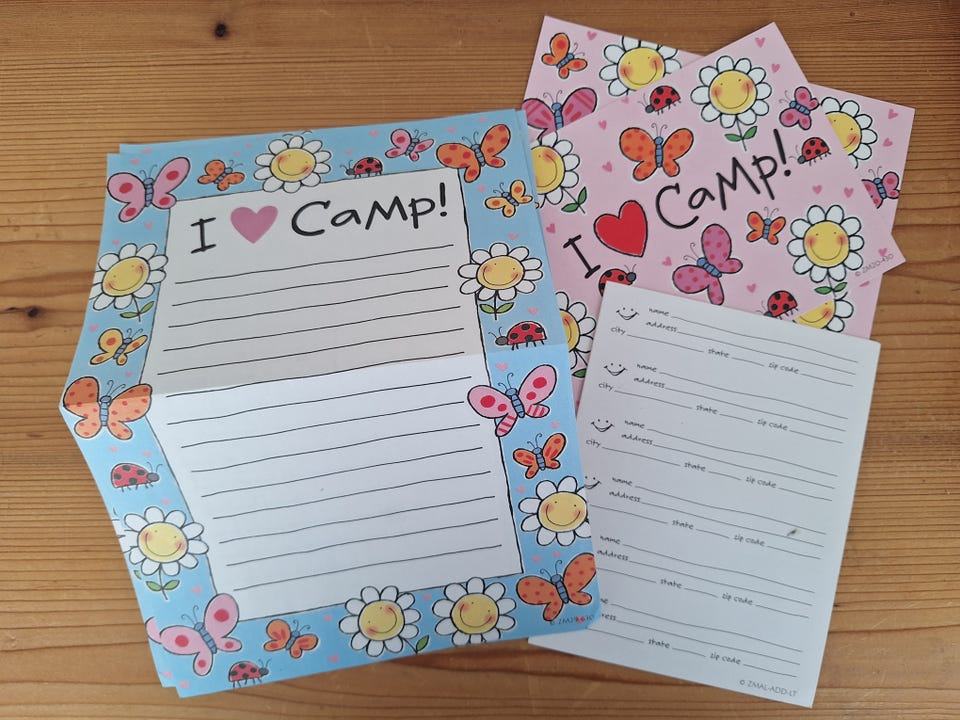 I ♥ CaMp!
I ♥ CaMp!
name
address
city state zip code
name
address
city state zip code
name
address
city state zip code
name
address
state zip code
name
address
state zip code
ress
state zip code
© ZMAL-ADD-LT